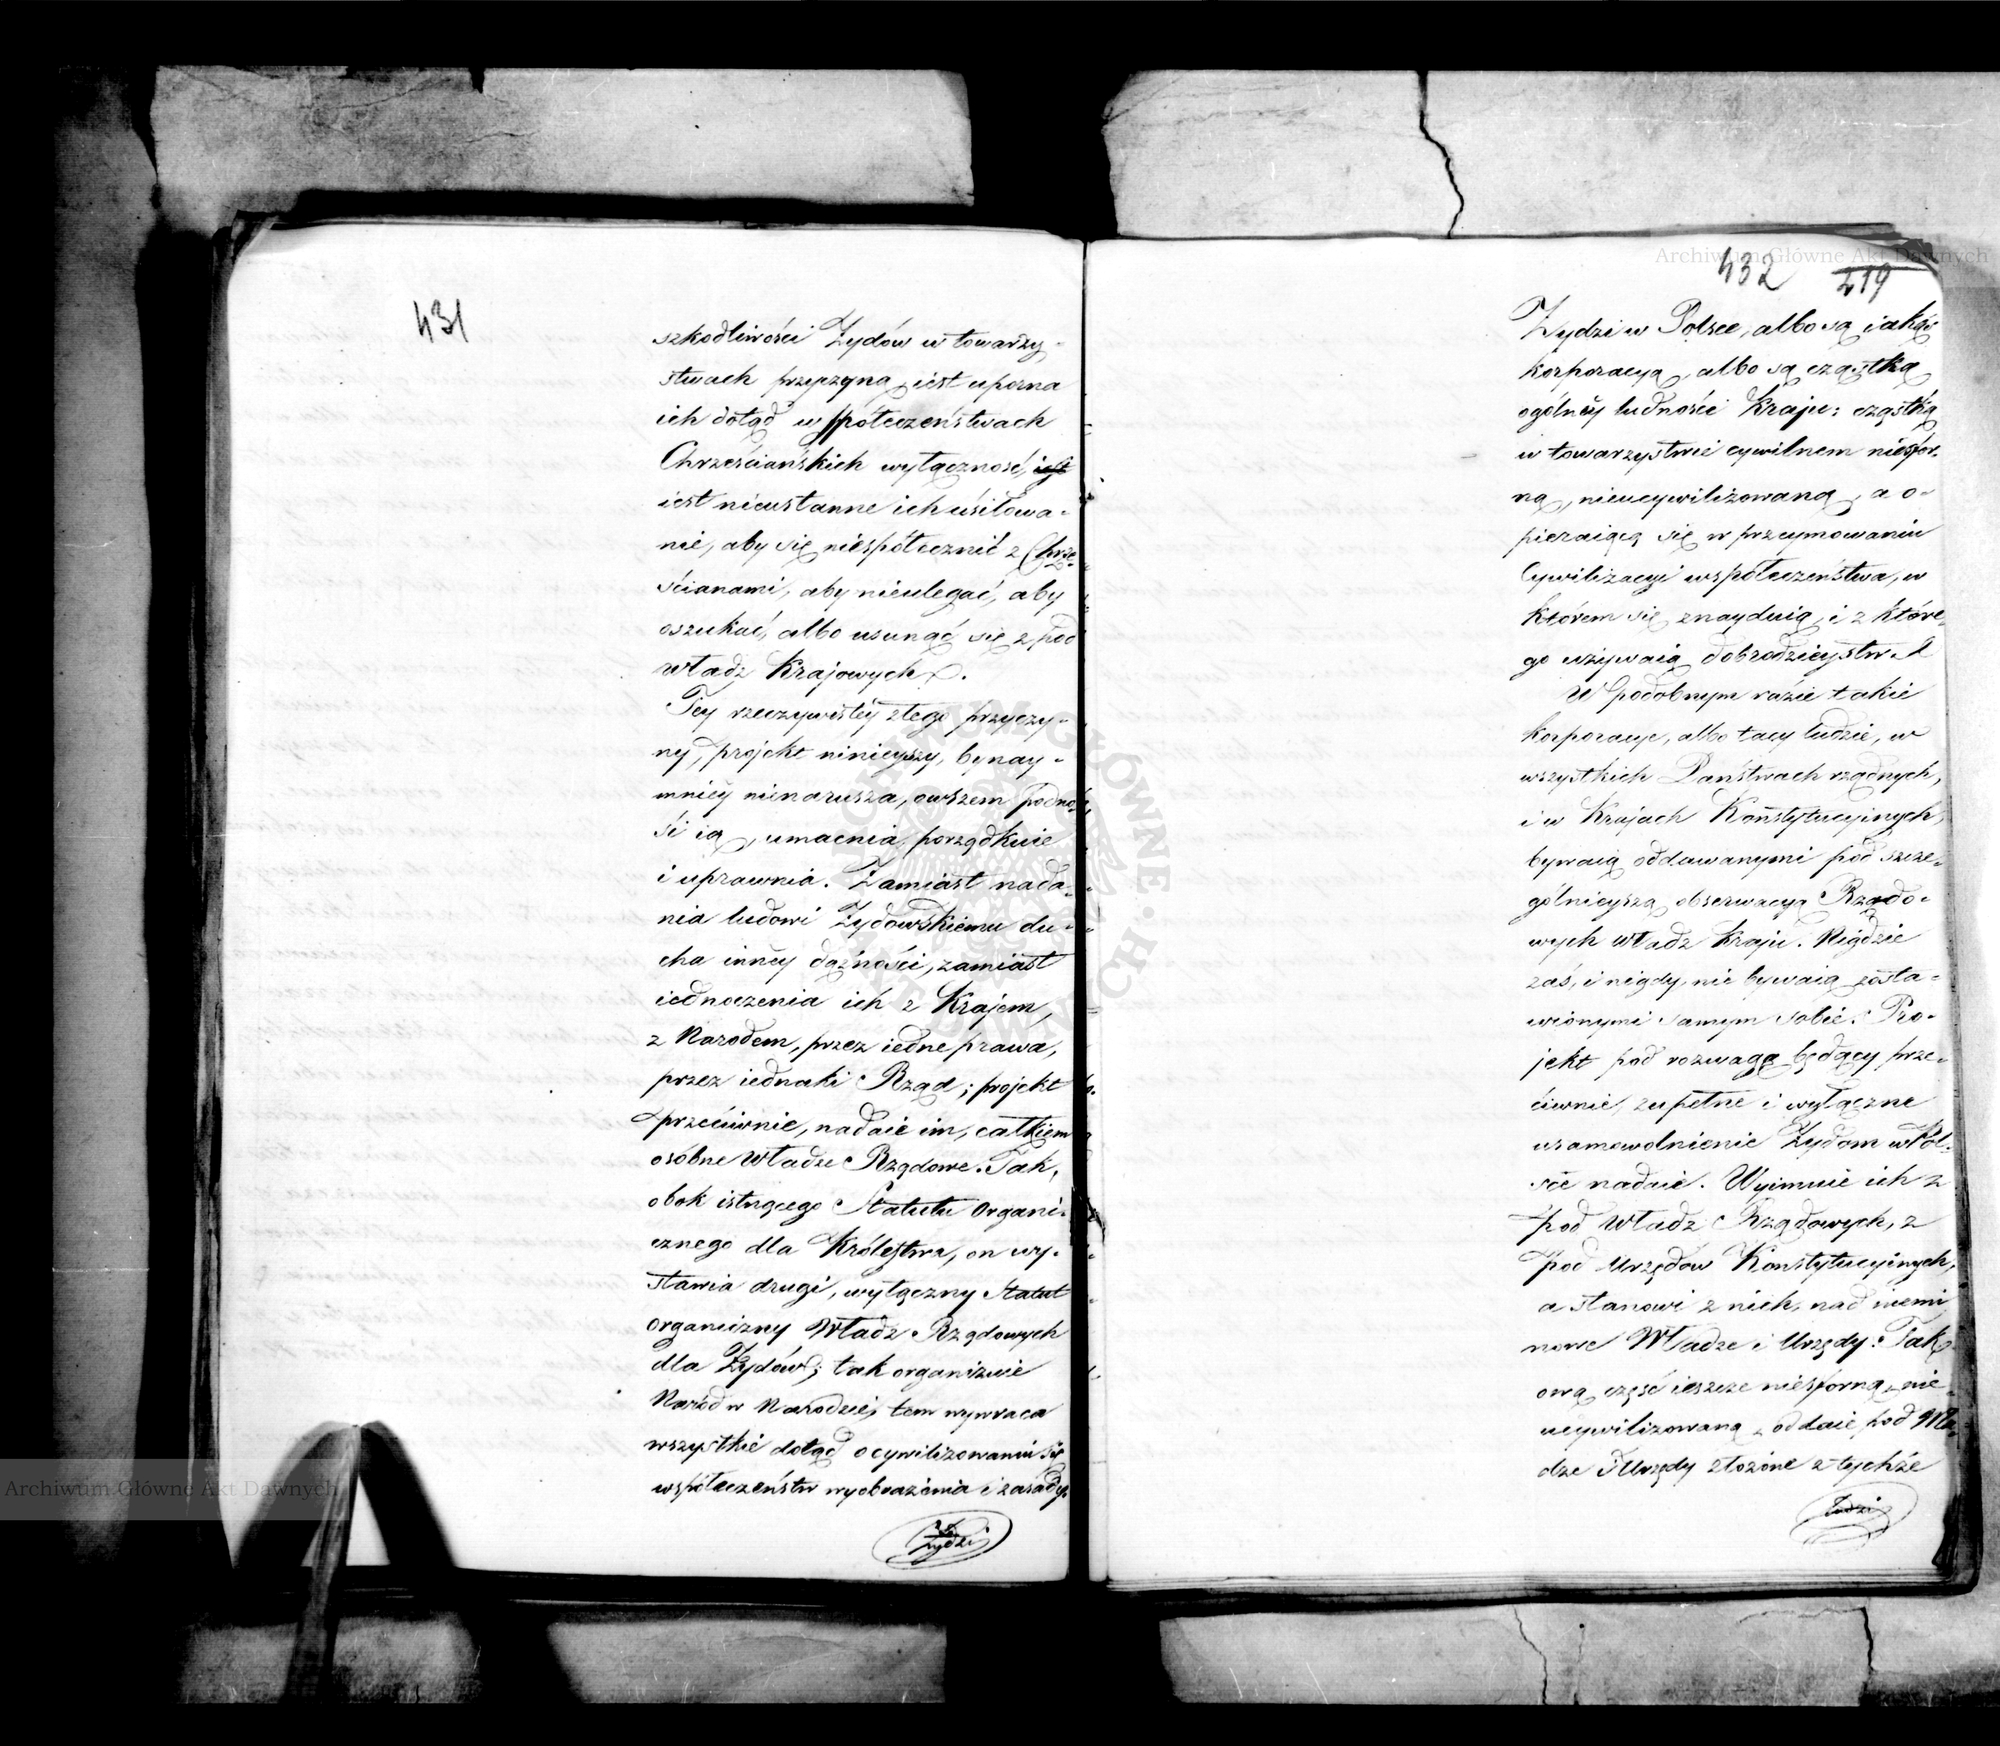 431
szkodliwości Żydów w towarzy-
stwach przyczyną, iest uporna
ich dotąd w spółeczeństwach
Chrześciańskich wyłączność, iest
iest nieustanne ich usiłowa-
nie, aby się niespółecznić z Chrze-
ścianami, aby nieulegać, aby
oszukać, albo usunąć się z pod
władz Krajowych.
Tey rzeczywistéy złego przyczy-
ny, projekt ninieyszy, bynay-
mniéy nienarusza, owszem podno-
si ią, umacnia, porządkuie
i uprawnia. Zamiast nada-
nia ludowi Żydowskiemu du-
cha innéy dążności, zamiast
iednoczenia ich z Krajem,
z Narodem, przez iedne prawa,
przez iednaki Rząd; projekt
przeciwnie, nadaie im, całkiem
osóbne Władze Rządowe. Tak,
obok istnącego Statutu Organi-
cznego dla Królestwa, on wy-
stawia drugi, wyłączny Statut
organiczny Władz Rządowych
dla Żydów; tak organizuie
Naród w Narodzie, tem wywraca
wszystkie dotąd o cywilizowaniu się
współeczeństw wyobrażenia i zasady.
Żydzi
432 219
Żydzi w Polsce, albo są iakąś
korporacyą, albo są cząstką
ogólnéy ludności Kraju: cząstką
w towarzystwie cywilnem niesfor-
ną, nieucywilizowaną, a o-
pieraiącą się w przeymowaniu
Cywilizacyi współeczeństwa, w
którem się znayduią, i z które-
go używaią dobrodzieystw.
W podobnym razie takie
korporacye, albo tacy ludzie, w
wszystkich Państwach rządnych,
i w Krajach Konstytucyinych,
bywaią oddawanymi pod szcze-
gólnieyszą obserwacyą Rządo-
wych Władz Kraju. Nigdzie
zaś, i nigdy, nie bywaią zosta-
wionymi samym sobie. Pro-
jekt pod rozwagę będący prze-
ciwnie, zupełne i wyłączne
usamowolnienie Żydom w Pol-
sce nadaie. Wyimuie ich z
pod Władz Rządowych, z
pod Urzędów Konstytucyinych,
a stanowi z nich, nad niemi
nowe Władze i Urzędy. Tak
ową część ieszcze niesforną, nie-
ucywilizowaną, oddaie pod Wła-
dze i Urzędy złożone z tychże
Żydzi
Archiwum Główne Akt Dawnych
Archiwum Główne Akt Dawnych